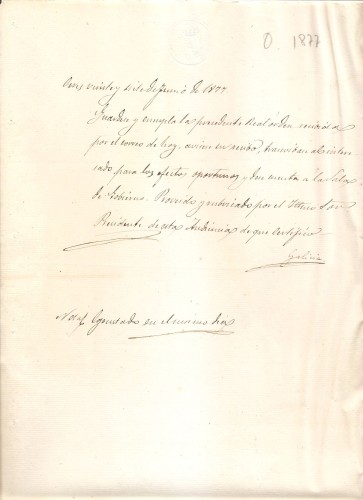 O. 1877
veinte y siete de Junio de 1877.
Guardese y cumpla la precedente Real orden recibida
por el correo de hoy, avise su recibo, transcriba al intere-
sado para los efectos oportunos y dese cuenta a la Sala
de Gobierno. Proveido y rubricado por el Iltmo Sor
Presidente de esta Audiencia de que certifico
Nota/ Ejecutado en el mismo dia